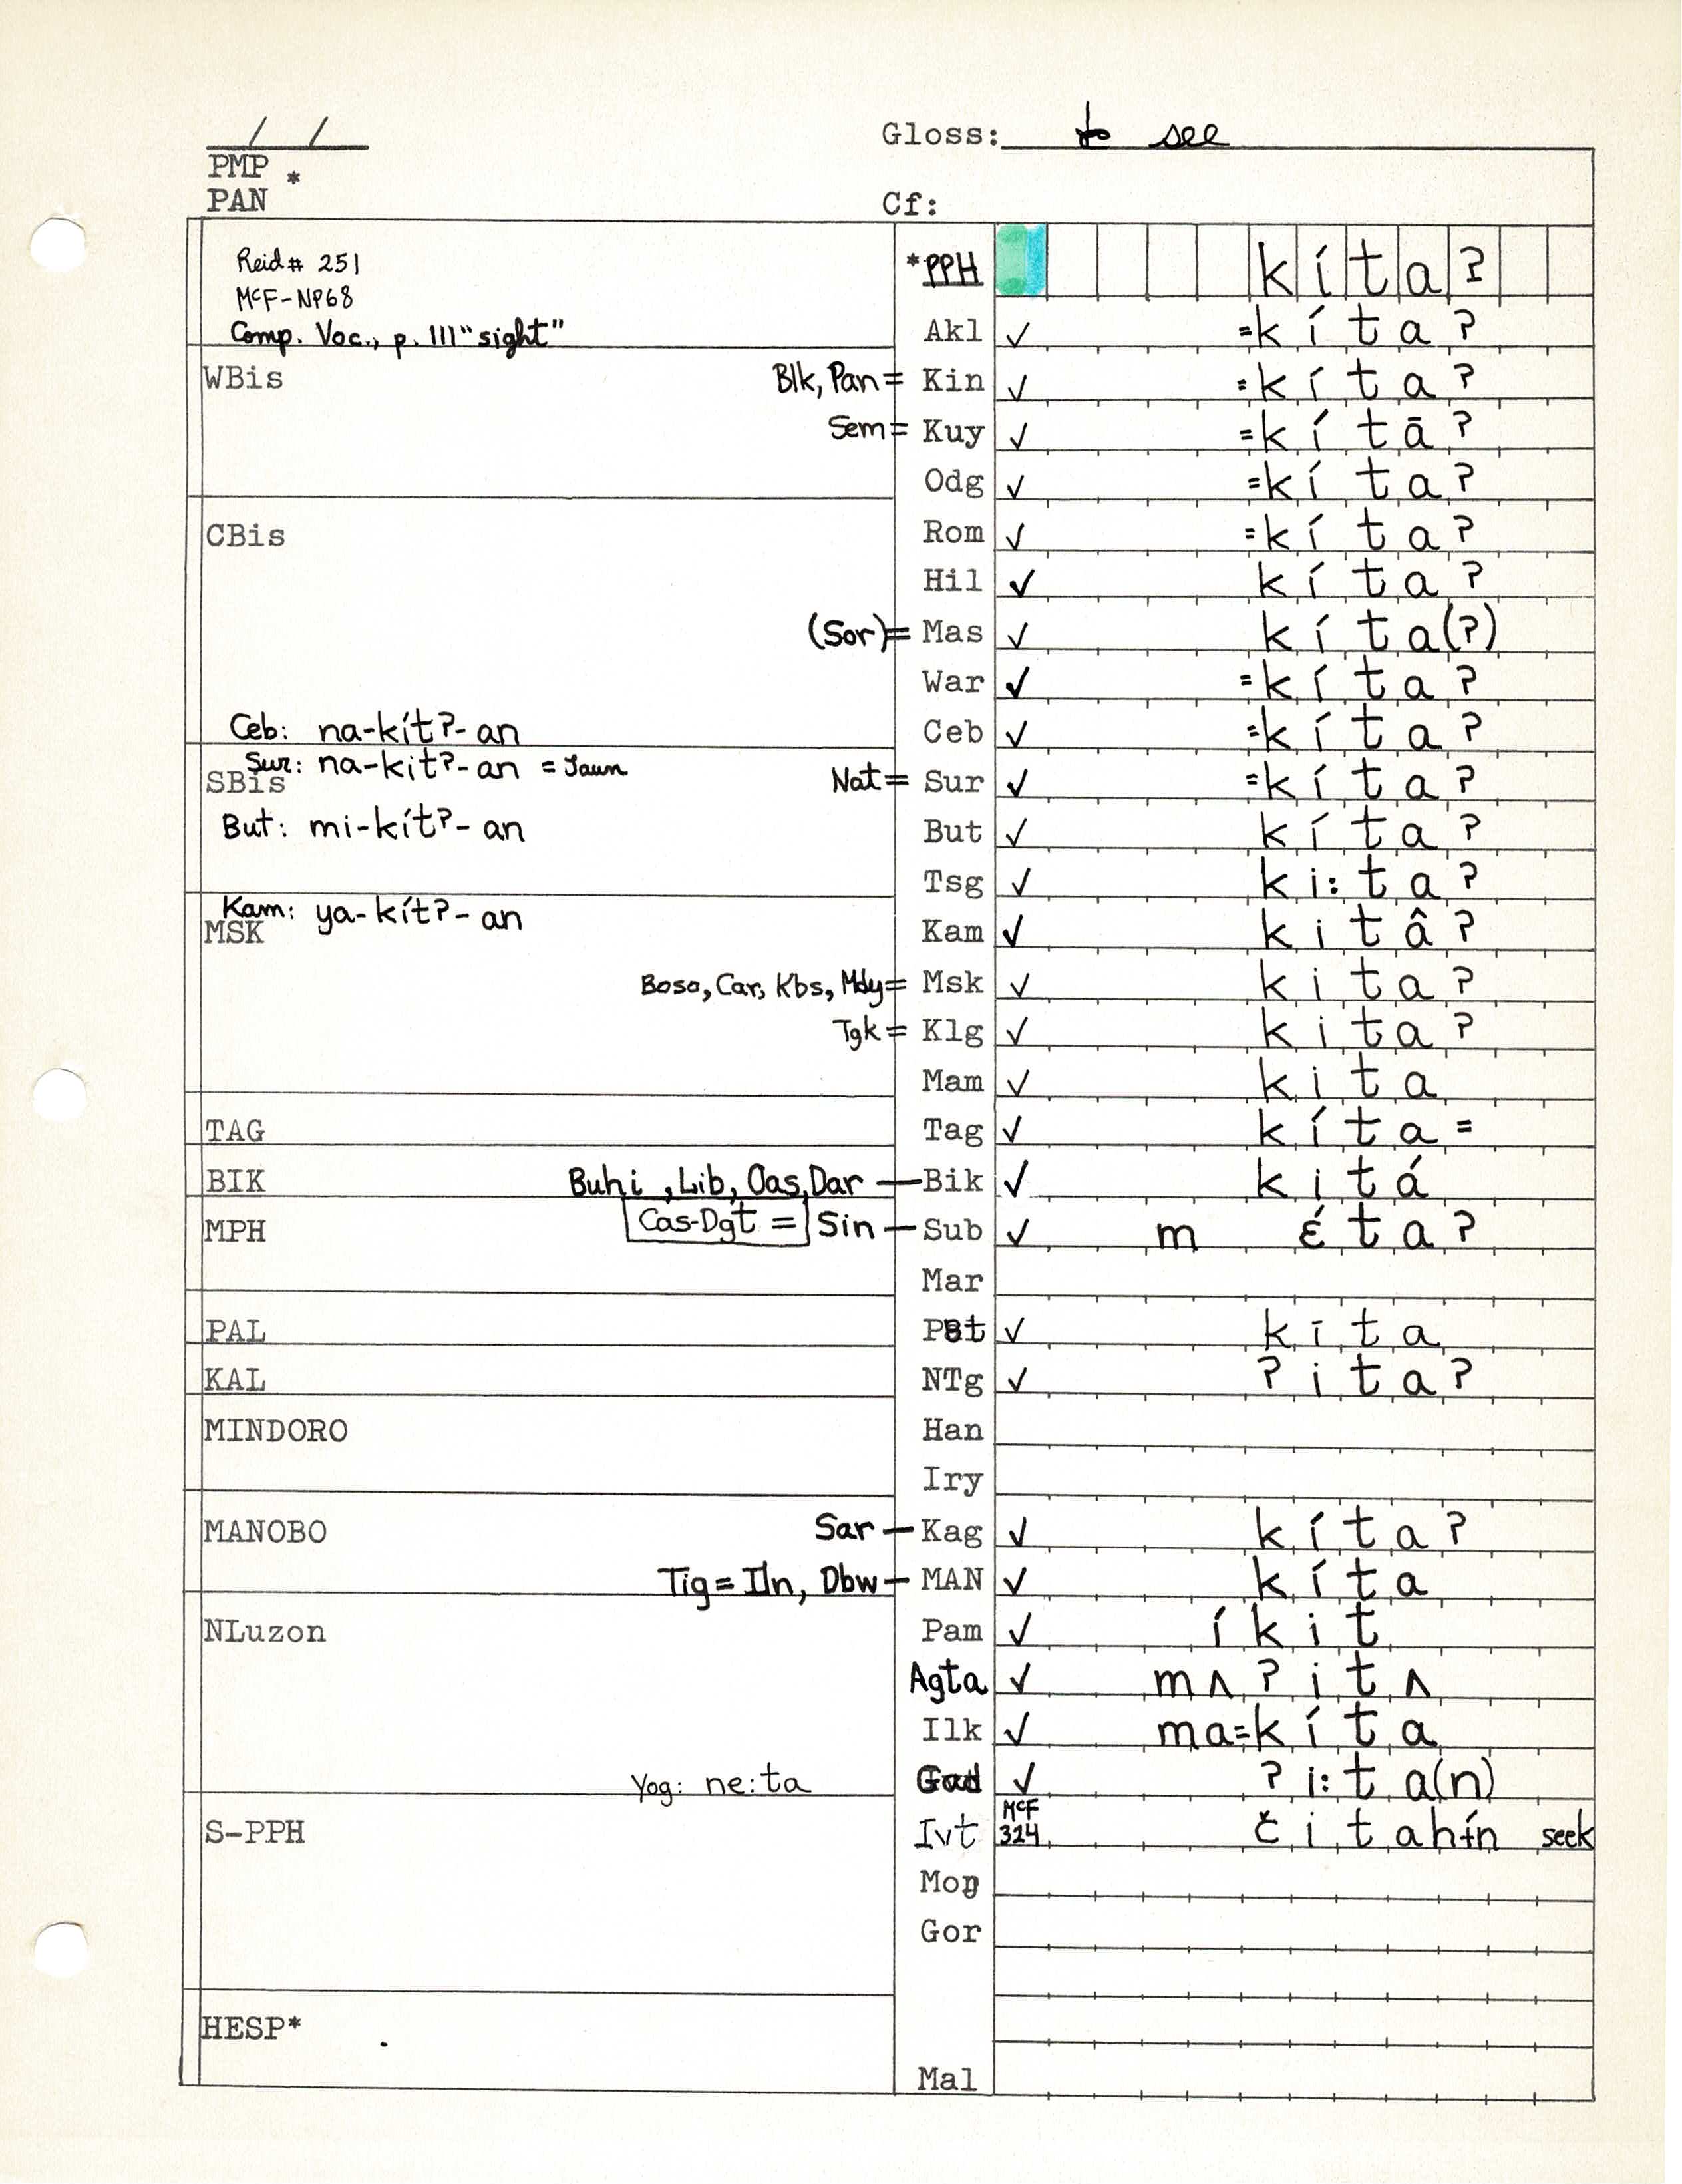 Gloss: to see
PMP *
PAN
Cf:
Reid# 251
McF-NP68
Comp. Voc., p. 111 "sight"
*PPH kíta?
Akl ✓ =kíta?
WBis Blk, Pan= Kin ✓ =kíta?
Sem= Kuy ✓ =kítā?
Odg ✓ =kíta?
CBis Rom ✓ =kíta?
Hil ✓ kíta?
(Sor)= Mas ✓ kíta(?)
War ✓ =kíta?
Ceb: na-kít?-an Ceb ✓ =kíta?
Sur: na-kit?-an = Jaun
SBis Nat= Sur ✓ =kíta?
But: mi-kít?-an But ✓ kíta?
Tsg ✓ ki:ta?
Kam: ya-kít?-an
MSK Kam ✓ kitâ?
Boso, Car, Kbs, Mdy= Msk ✓ kita?
Tgk = Klg ✓ kita?
Mam ✓ kita
TAG Tag ✓ kíta=
BIK Buhi, Lib, Oas, Dar — Bik ✓ kitá
MPH Cas-Dgt = Sin — Sub ✓ m έta?
Mar
PAL ✓ kīta
KAL NTg ✓ ?ita?
MINDORO Han
Iry
MANOBO Sar — Kag ✓ kíta?
Tig = Iln, Dbw — MAN ✓ kíta
NLuzon Pam ✓ íkit
Agta ✓ mʌ?itʌ
Ilk ✓ ma=kíta
Yog: ne:ta Gad ✓ ?i:ta(n)
S-PPH Ivt McF 324 čitahɨn seek
Moŋ
Gor
HESP*
Mal